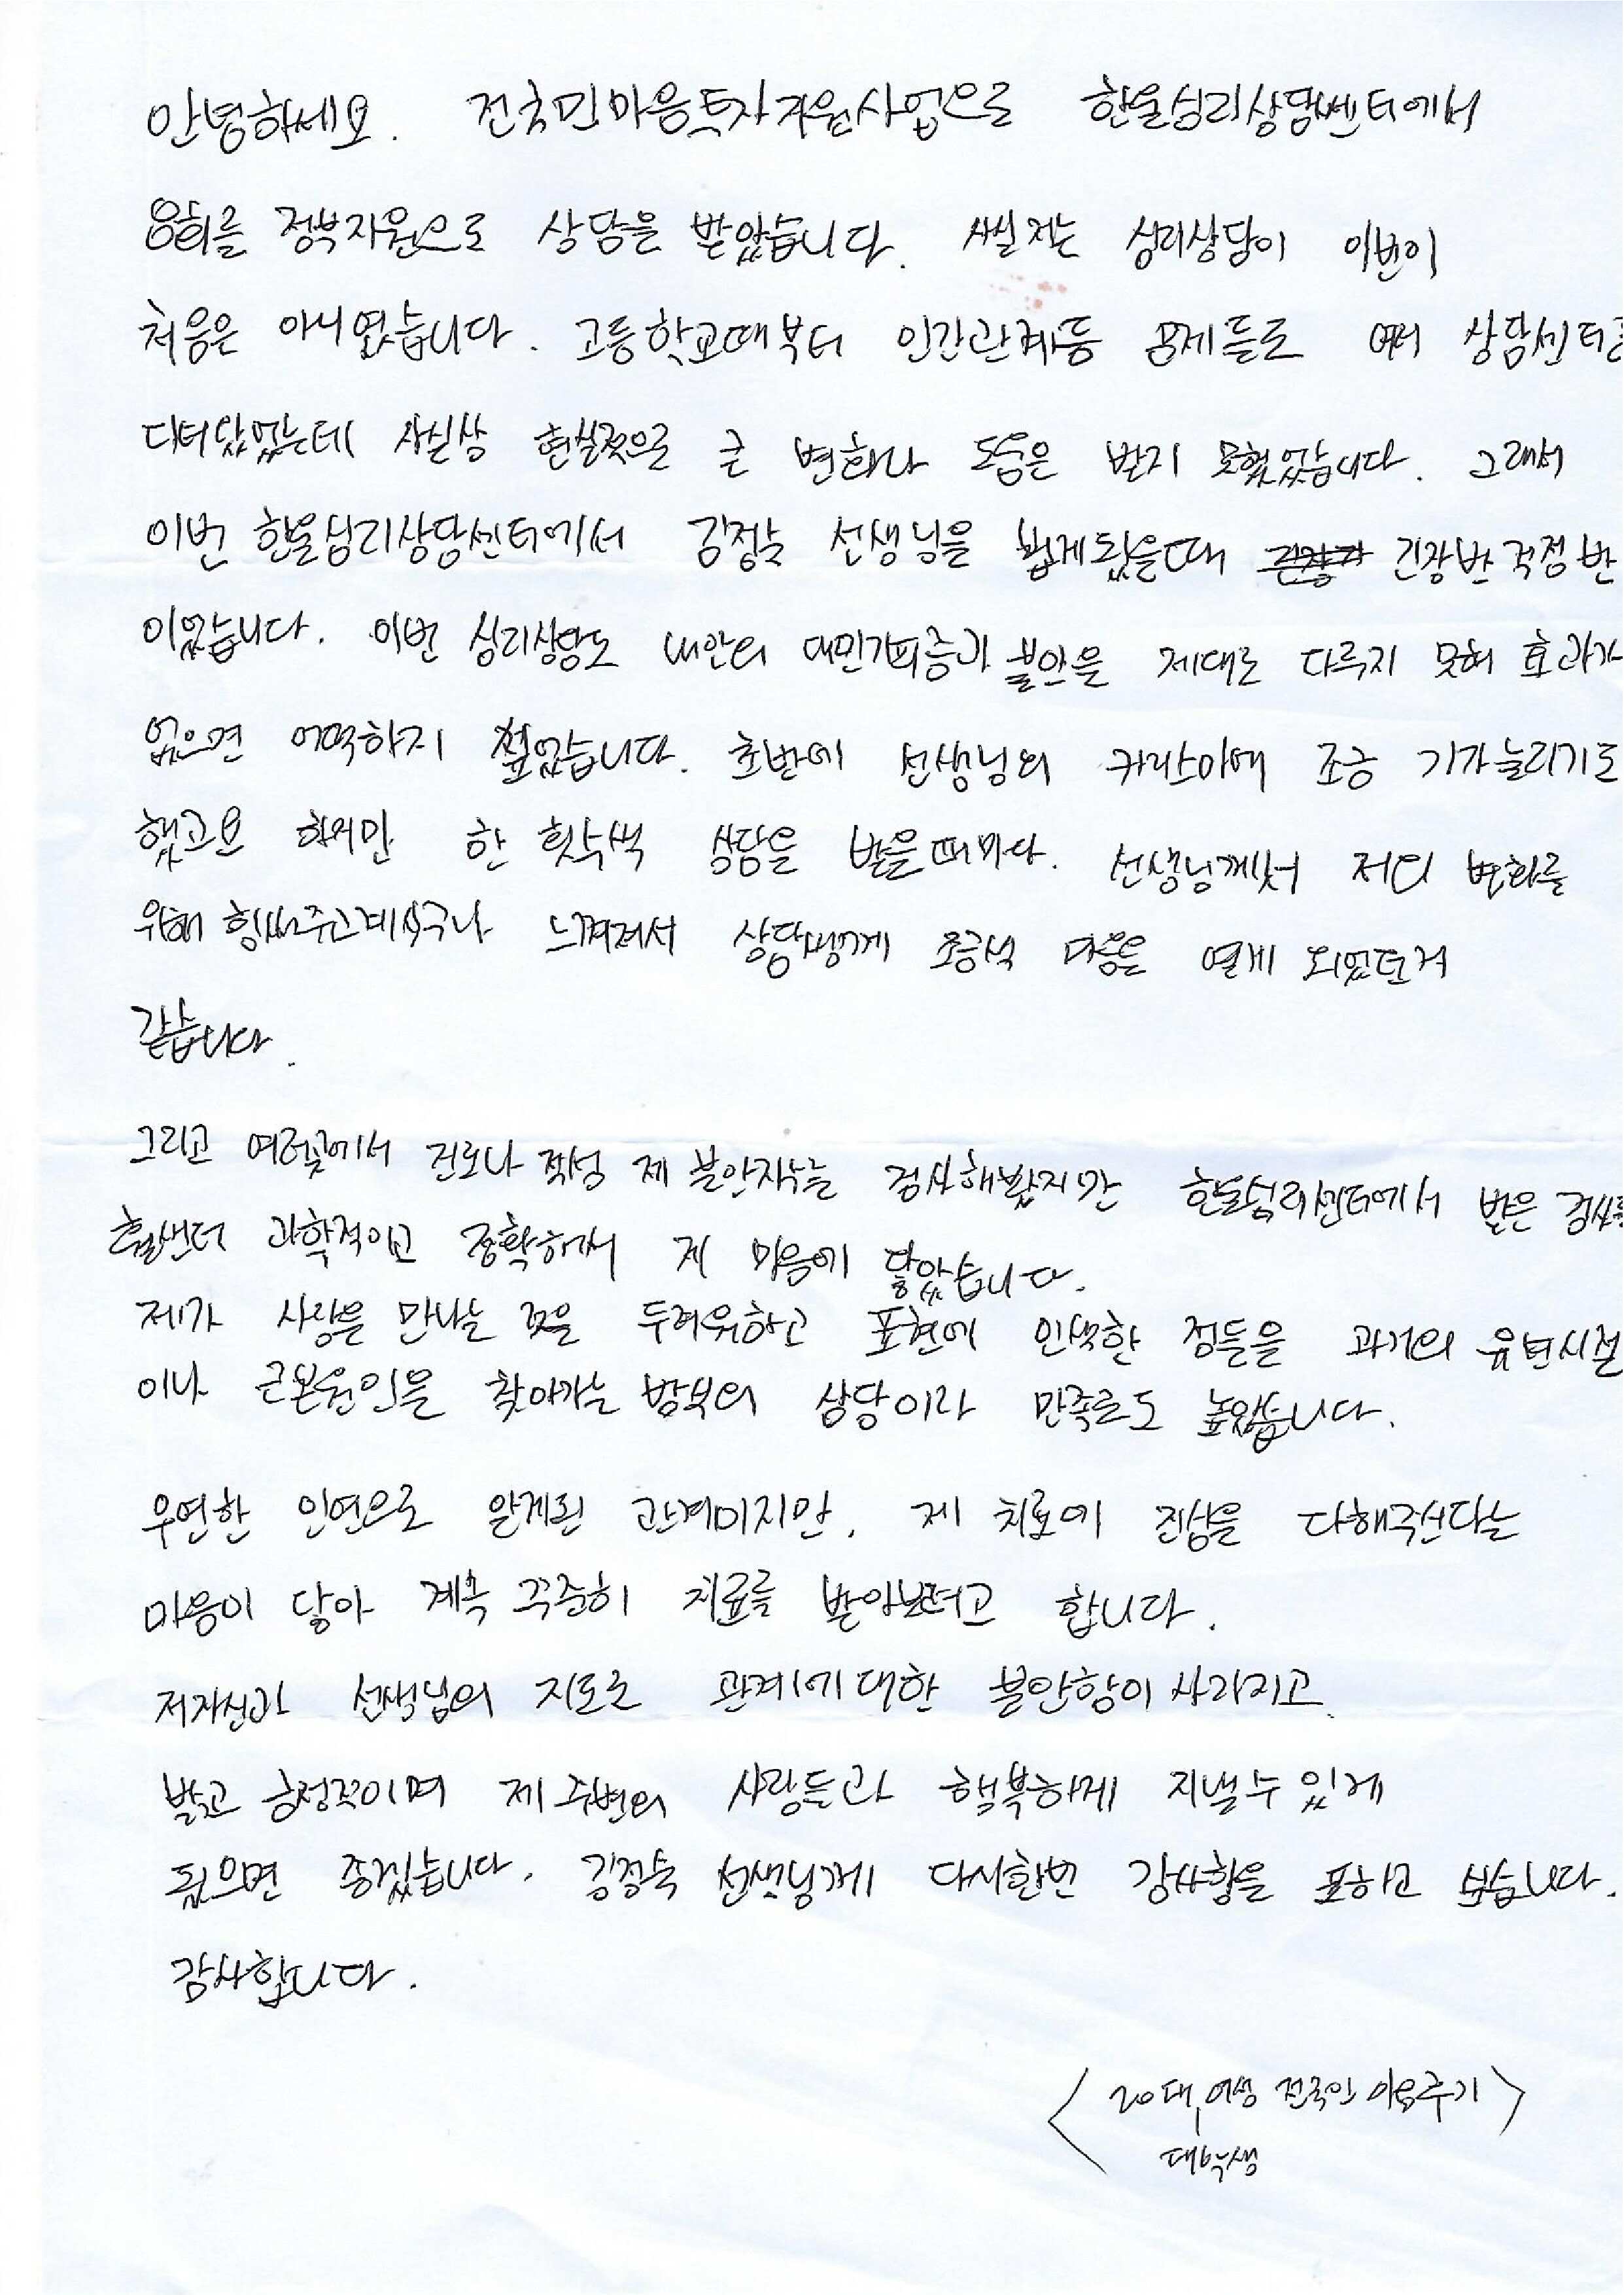 안녕하세요. 전국민마음투자지원사업으로 한울심리상담센터에서
8회를 정부지원으로 상담을 받았습니다. 사실 저는 심리상담이 이번이
처음은 아니였습니다. 고등학교때부터 인간관계등 문제들로 여러 상담센터를
다녀왔었는데 사실상 현실적으로 큰 변화나 도움은 받지 못했었습니다. 그래서
이번 한울심리상담센터에서 김정숙 선생님을 뵙게됬을때 긴장반 걱정반
이었습니다. 이번 심리상담도 내안의 대인기피증과 불안을 제대로 다루지 못해 효과가
없으면 어떡하지 싶었습니다. 초반에 선생님의 카리스마에 조금 기가눌리기도
했고요 하지만 한 회수씩 상담을 받을때마다. 선생님께서 저의 변화를
위해 힘써주고계시구나 느껴져서 상담쌤께 조금씩 마음을 열게 되었던거
같습니다.
그리고 여러곳에서 진로나 적성 제 불안지수를 검사해봤지만 한울심리센터에서 받은 검사가
훨씬더 과학적이고 정확해서 제 마음에 닿았습니다.
제가 사람을 만나는 것을 두려워하고 표현에 인색한 점들을 과거의 유년시절
이나 근본원인을 찾아가는 방식의 상담이라 만족도도 높았습니다.
우연한 인연으로 알게된 관계이지만, 제 치료에 진심을 다해주신다는
마음이 닿아 계속 꾸준히 치료를 받아보려고 합니다.
저자신과 선생님의 지도로 관계에대한 불안함이 사라지고
밝고 긍정적이며 제 주변의 사람들과 행복하게 지낼수있게
됬으면 좋겠습니다. 김정숙 선생님께 다시한번 감사함을 표하고 싶습니다.
감사합니다.
〈 20대, 여성 전국민 이용후기 〉
대학생